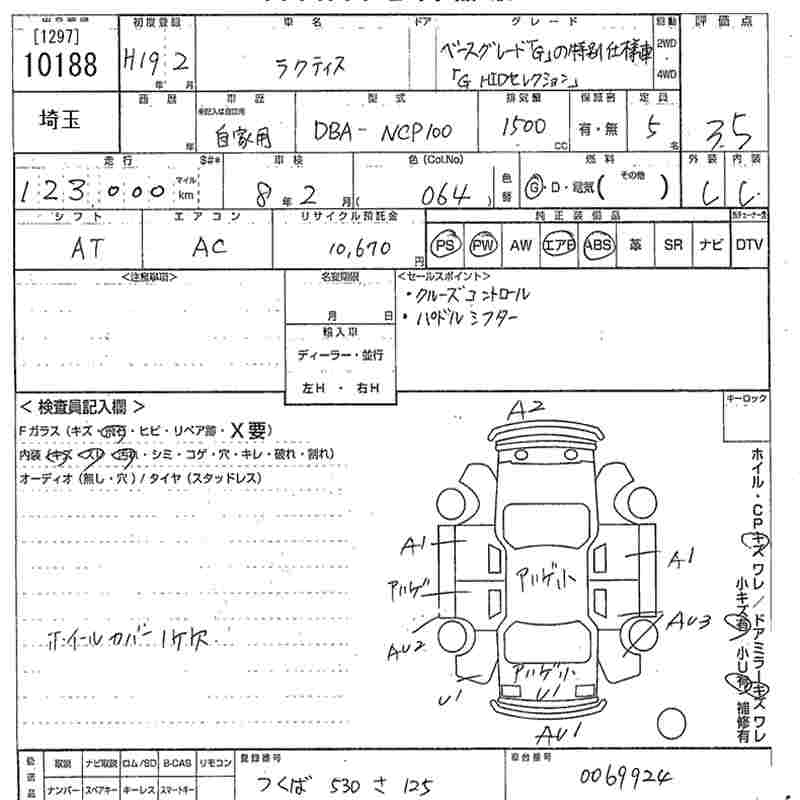 [1297]
10188
初度登録
H19 2
年 月
車名
ラクティス
ドア
グレード
ベースグレード「G」の特別仕様車
「G HIDセレクション」
駆動
2WD
・
4WD
評価点
3.5
埼玉
西暦
年
車歴
未記入は自家用
自家用
型式
DBA- NCP100
排気量
1500
CC
保証書
有・無
定員
5
名
走行
123,000
マイル
km
$#*
車検
8年2月
色(Col.No)
( 064 )
色替
燃料
G・D・電気( その他 )
外装
C
内装
C
シフト
AT
エアコン
AC
リサイクル預託金
10,670
円
純正装備品
PS PW AW エアB ABS 革 SR ナビ DTV
<注意事項>
名変期限
月 日
輸入車
ディーラー・並行
左H ・ 右H
<セールスポイント>
・クルーズコントロール
・パドルシフター
<検査員記入欄>
Fガラス(キズ・飛石・ヒビ・リペア跡・X要)
内装(キズ・スレ・汚れ・シミ・コゲ・穴・キレ・破れ・割れ)
オーディオ(無し・穴)/タイヤ(スタッドレス)
ホイールカバー1ケ欠
キーロック
A2
A1
A1
アハゲ
アハゲ小
AU2
AU3
アハゲ小
U1
U1
AU1
ホイル・CPキズ ワレ / ドアミラーキズ ワレ
小キズ有 小U有 補修有
後送品
取説 ナビ取説 ロム/SD B-CAS リモコン
ナンバー スペアキー キーレス スマートキー
登録番号
つくば 530 さ 125
車台番号
0069924